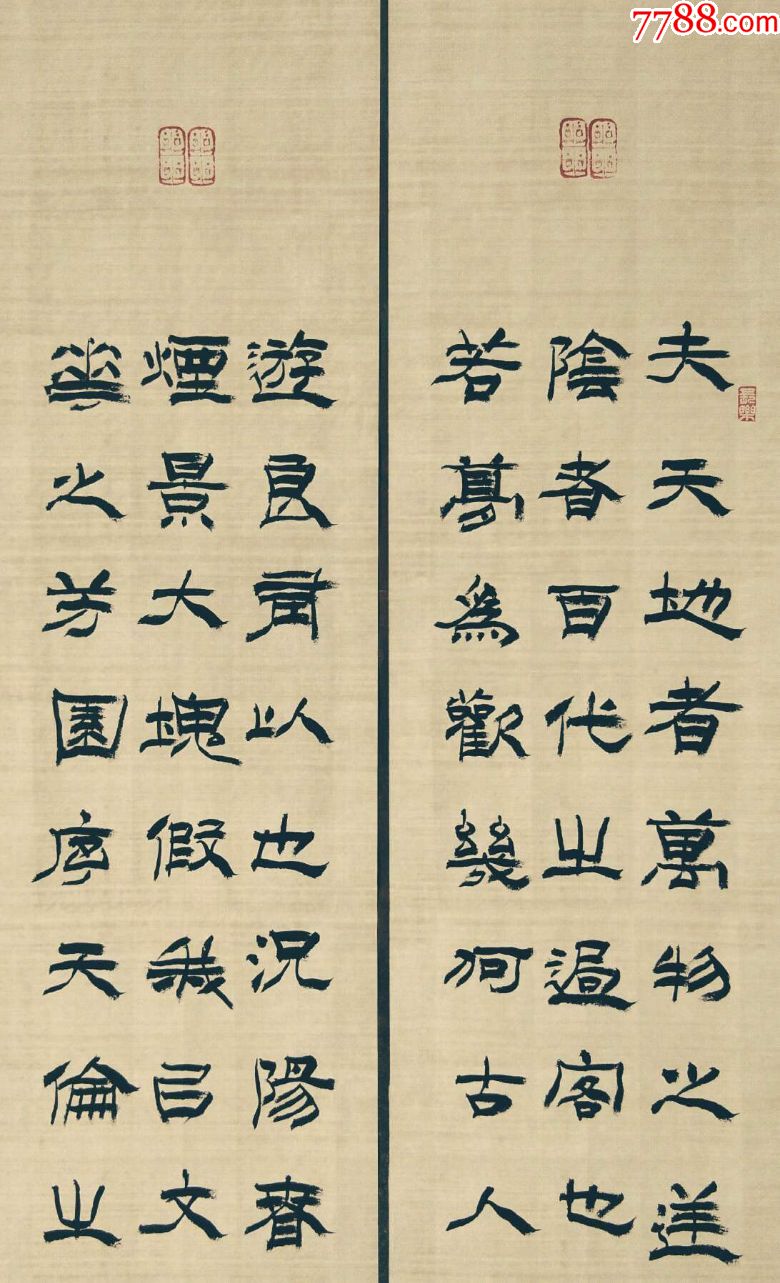 7788.com
夫天地者萬物之逆
陰者百代之過客也
若夢爲歡幾何古人
遊良有以也況陽春
煙景大塊假我㠯文
華之芳園序天倫之
長樂